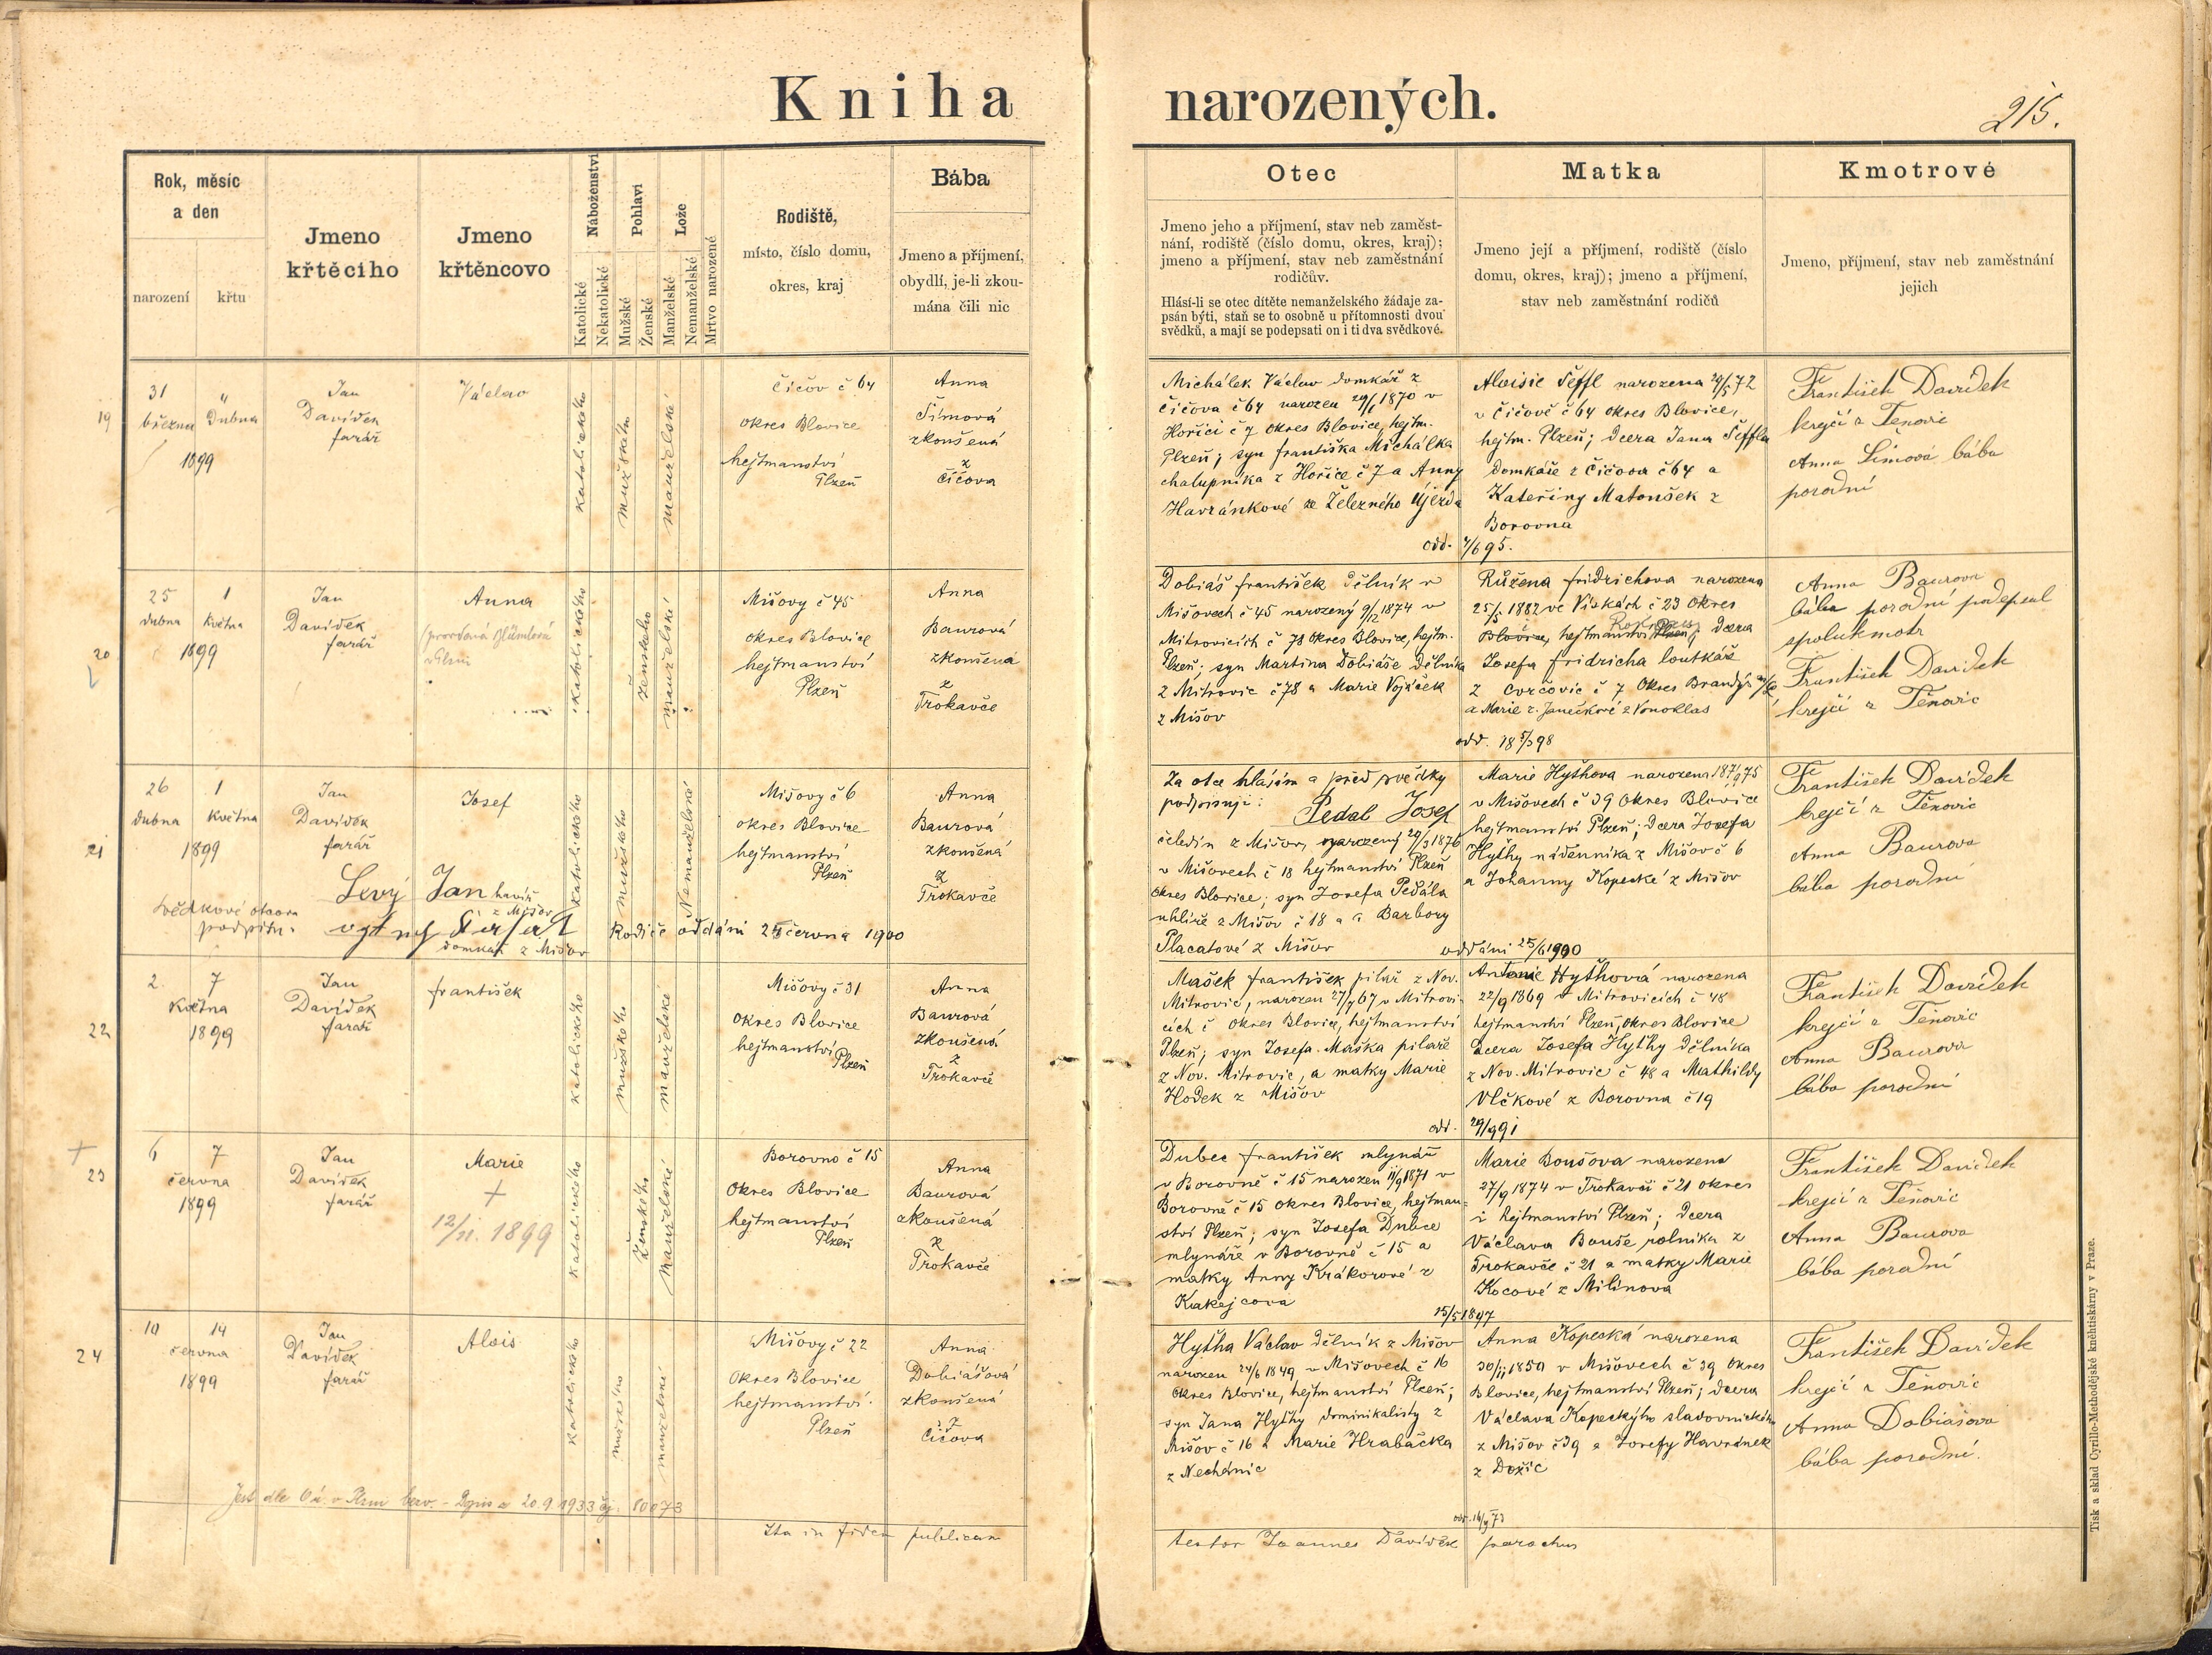 Kniha narozených.
215.
Rok, měsíc
a den
narození
křtu
Jmeno
křtěcího
Jmeno
křtěncovo
Náboženství
Katolické
Nekatolické
Pohlaví
Mužské
Ženské
Lože
Manželské
Nemanželské
Mrtvo narozené
Rodiště,
místo, číslo domu,
okres, kraj
Bába
Jmeno a příjmení,
obydlí, je-li zkou-
mána čili nic
Otec
Jmeno jeho a příjmení, stav neb zaměst-
nání, rodiště (číslo domu, okres, kraj);
jmeno a příjmení, stav neb zaměstnání
rodičův.
Hlásí-li se otec dítěte nemanželského žádaje za-
psán býti, staň se to osobně u přítomnosti dvou
svědků, a mají se podepsati on i ti dva svědkové.
Matka
Jmeno její a příjmení, rodiště (číslo
domu, okres, kraj); jmeno a příjmení,
stav neb zaměstnání rodičů
Kmotrové
Jmeno, příjmení, stav neb zaměstnání
jejich
19
31 "
března Dubna
1899
Jan
Davídek
farář
Václav
katolického
mužského
manželské
Čičov č 64
okres Blovice
hejtmanství
Plzeň
Anna
Šimová
zkoušená
z
Čičova
Michálek Václav domkář z
Čičova č 64 narozen 29/1 1870 v
Hořici č 7 okres Blovice, hejtm.
Plzeň; syn Františka Michálka
chalupníka z Hořice č 7 a Anny
Havránkové ze Železného Újezda
Aloisie Šeffl narozena 29/5 72
v Čičově č 64 okres Blovice,
hejtm. Plzeň; dcera Jana Šeffla
domkáře z Čičova č 64 a
Kateřiny Matoušek z
Borovna
odd. 4/6 95.
František Davídek
krejčí z Těnovic
Anna Šimová bába
porodní
20
25 1
dubna května
1899
Jan
Davídek
farář
Anna
katolického
ženského
manželské
Mišovy č 45
okres Blovice
hejtmanství
Plzeň
Anna
Baurová
zkoušená
z
Trokavče
Dobiáš František dělník v
Mišovech č 45 narozený 9/12 1874 v
Mitrovicích č 78 okres Blovice, hejtm.
Plzeň; syn Martina Dobiáše dělníka
z Mitrovic č 78 a Marie Vojáček
z Mišov
Růžena Fridrichova narozena
25/5 1882 ve Vískách č 23 okres
Blovice, hejtmanství Plzeň; dcera
Rokycany
Josefa Fridricha loutkáře
z Cvrčovic č 7 okres Brandýs
a Marie r. Janečkové z Vonoklas
odd. 18 5/7 98
Anna Baurova
bába porodní podepsal
spolukmotr
František Davídek
krejčí z Těnovic
21
26 1
dubna května
1899
Jan
Davídek
farář
Josef
katolického
mužského
Nemanželské
Mišovy č 6
okres Blovice
hejtmanství
Plzeň
Anna
Baurová
zkoušená
z
Trokavče
Levý Jan havíř
z Mišov
Svědkové otcova
podpisu:
domkář z Mišov
Rodiče oddáni 25 června 1900
Za otce hlásím a před svědky
podpisuji:
Pedal Josef
čeledín z Mišov, narozený 29/3 1876
v Mišovech č 18 hejtmanství Plzeň
okres Blovice; syn Josefa Pedála
uhlíře z Mišov č 18 a Barbory
Placatové z Mišov
Marie Hythova narozena 75
v Mišovech č 39 okres Blovice
hejtmanství Plzeň; dcera Josefa
Hythy nádenníka z Mišov č 6
a Johanny Kopecké z Mišov
oddáni 25/6 1900
František Davídek
krejčí z Těnovic
Anna Baurova
bába porodní
22
2 7
Května
1899
Jan
Davídek
farář
František
katolického
mužského
manželské
Mišovy č 31
okres Blovice
hejtmanství
Plzeň
Anna
Baurová
zkoušená
z
Trokavče
Mašek František pilař z Nov.
Mitrovic, narozen 27/7 67 v Mitrovi-
cích č okres Blovice, hejtmanství
Plzeň; syn Josefa Maška pilaře
z Nov. Mitrovic, a matky Marie
Hodek z Mišov
Antonie Hythová narozena
22/9 1869 v Mitrovicích č 48
hejtmanství Plzeň, okres Blovice
dcera Josefa Hythy dělníka
z Nov. Mitrovic č 48 a Mathildy
Vlčkové z Borovna č 19
odd. 29/9 91
František Davídek
krejčí z Těnovic
Anna Baurova
bába porodní
23
6 7
června
1899
Jan
Davídek
farář
Marie
+
12/11. 1899
katolického
ženského
manželské
Borovno č 15
okres Blovice
hejtmanství
Plzeň
Anna
Baurová
zkoušená
z
Trokavče
Dubec František mlynář
v Borovně č 15 narozen 11/9 1871 v
Borovně č 15 okres Blovice, hejtman-
ství Plzeň; syn Josefa Dubce
mlynáře v Borovně č 15 a
matky Anny Krákorové z
Kakejcova
Marie Boušova narozena
27/9 1874 v Trokavči č 21 okres
i hejtmanství Plzeň; dcera
Václava Bouše rolníka z
Trokavče č 21 a matky Marie
Kocové z Milinova
15/5 1897
František Davídek
krejčí z Těnovic
Anna Baurova
bába porodní
24
10 14
června
1899
Jan
Davídek
farář
Alois
katolického
mužského
manželské
Mišovy č 22
okres Blovice
hejtmanství
Plzeň
Anna
Dobiášová
zkoušená
z
Čičova
Hytha Václav dělník z Mišov
narozen 24/6 1849 v Mišovech č 16
okres Blovice, hejtmanství Plzeň;
syn Jana Hythy dominikalisty z
Mišov č 16 a Marie Hrabačka
z Nechanic
Anna Kopecká narozena
30/11 1850 v Mišovech č 39 okres
Blovice, hejtmanství Plzeň; dcera
Václava Kopeckého sladovnického
z Mišov č 39 a Josefy Havránek
z Dožic
František Davídek
krejčí z Těnovic
Anna Dobiášova
bába porodní.
Jest dle 20.9.1933 čj. 10073
Ita in fidem publicam
testor Joannes Davídek parochus
Tisk a sklad Cyrillo-Methodějské knihtiskárny v Praze.